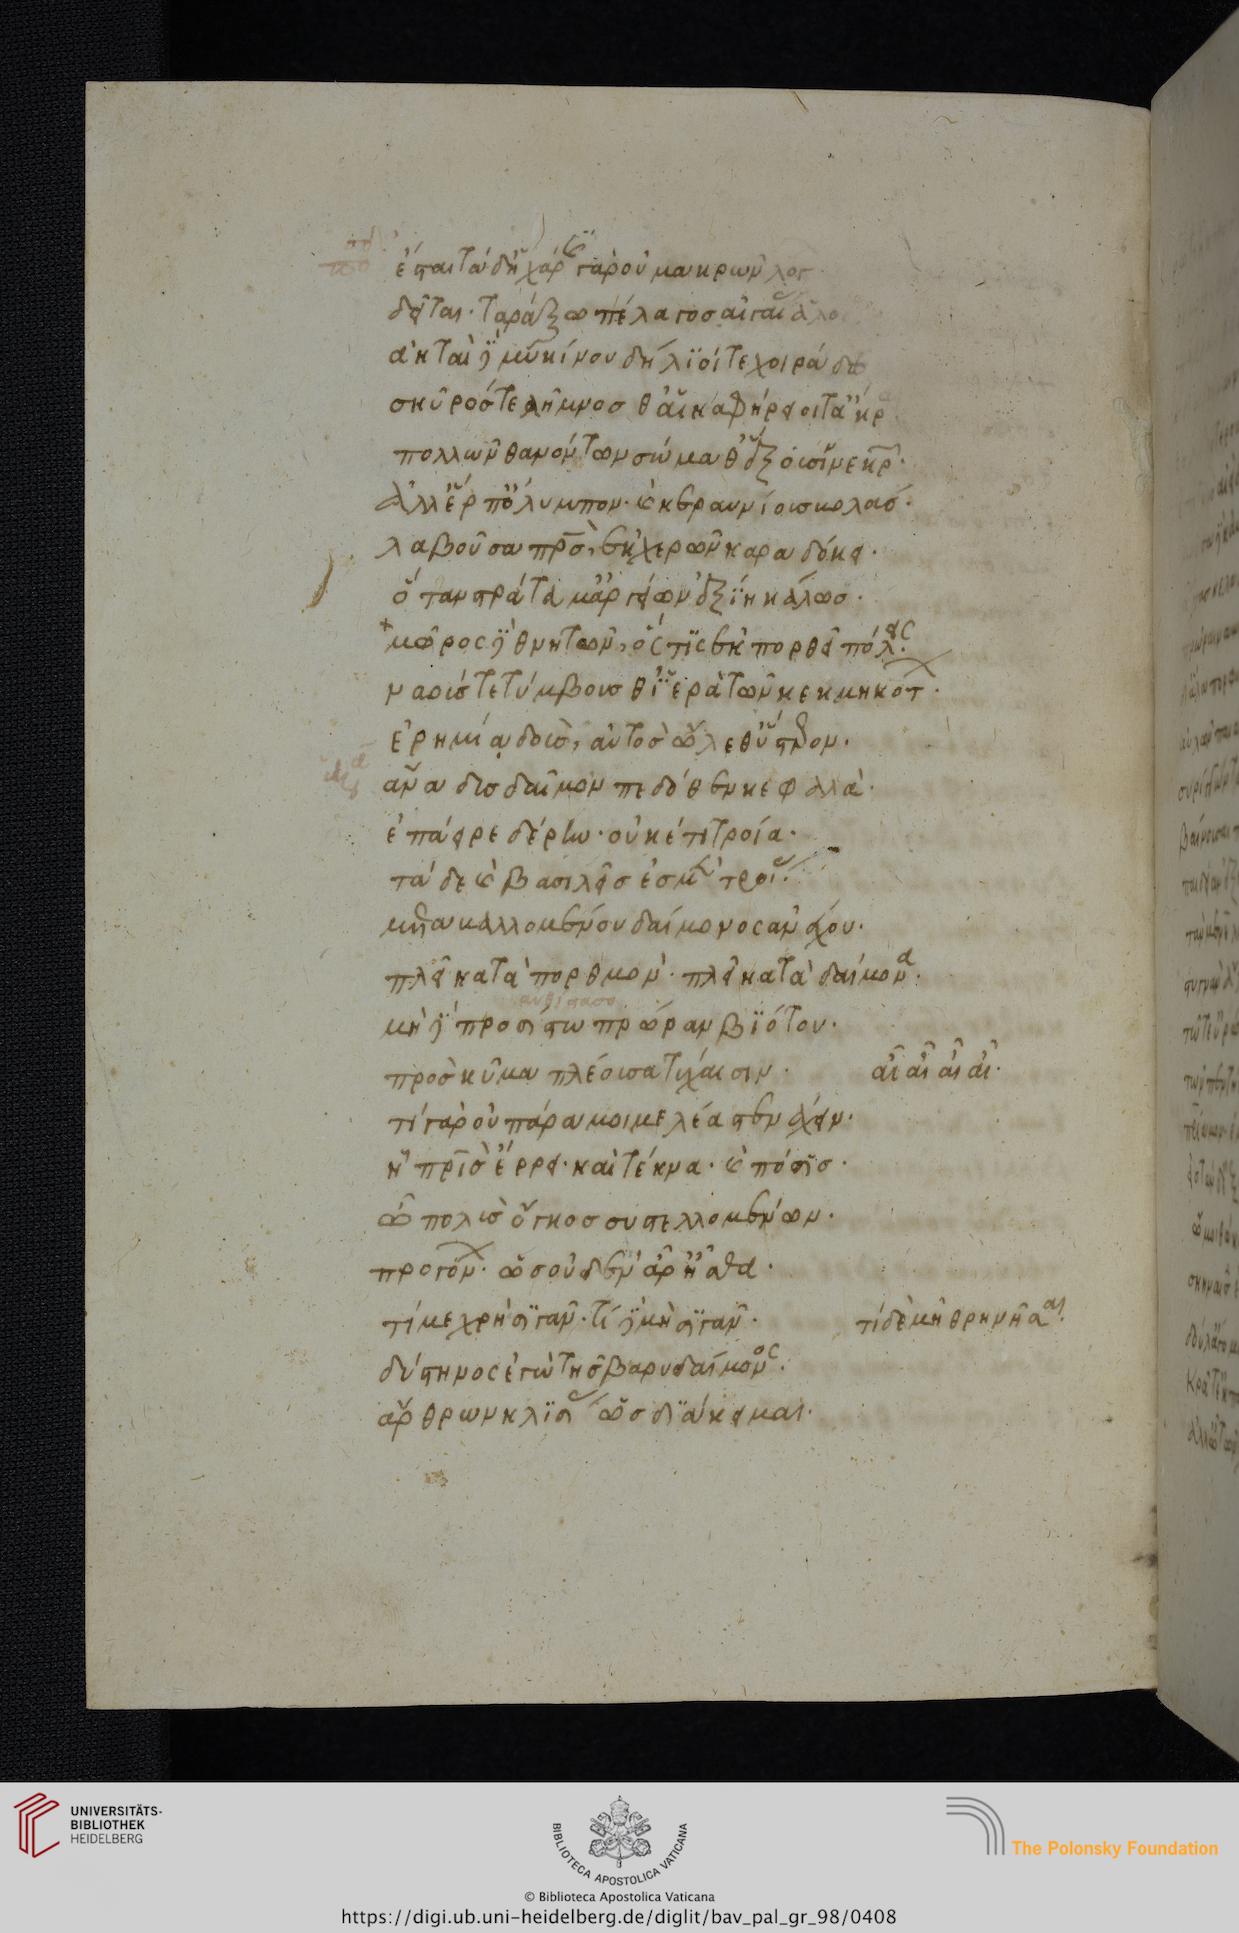 ἔσται τάδ' ἡ χάρις γὰρ οὐ μακρῶν λόγ
δεῖται. ταράξω πέλαγος αἰγαί ἁλο
ἀκταὶ δὲ μυκόνου δήλιοί τε χοιράδες
σκῦρός τε λῆμνος θ' αἱ καφήρειοί τ' ἄκρ
πολλῶν θανόντων σώμαθ' ἕξουσιν νεκρ.
ἀλλ' ἕρπ' ὄλυμπον. καὶ κεραυνίους βολάς.
λαβοῦσα πατρὸς, ἐκ χερῶν καραδόκει.
ὅταν στράτευμ' ἀργείων ἐξίῃ κάλως.
μῶρος δὲ θνητῶν, ὅστις ἐκπορθεῖ πόλεις.
ναούς τε τύμβους θ' ἱερὰ τῶν κεκμηκότ.
ἐρημίᾳ δοὺς, αὐτὸς ὤλεθ' ὕστερον.
ἄνα δύσδαιμον πεδόθεν κεφαλὰ.
ἐπάειρε δέρην. οὐκέτι τροία.
τάδε καὶ βασιλεῖς ἐσμὲν τροί.
μεταβαλλομένου δαίμονος ἀνσχου.
πλεῖ κατὰ πορθμόν. πλεῖ κατὰ δαίμονα.
μὴ δὲ προσίστω πρώραν βιότου.
πρὸς κῦμα πλέουσα τύχαισιν. αἶ αἶ αἶ αἶ.
τί γὰρ οὐ πάρα μοι μελέα στενάχειν.
ᾗ πατρὶς ἔρρει. καὶ τέκνα. καὶ πόσις.
ὦ πολὺς ὄγκος συστελλομένων.
προγόνων. ὡς οὐδὲν ἄρ' ἦσθα.
τί με χρὴ σιγᾶν. τί δὲ μὴ σιγᾶν. τί δὲ μὴ θρηνῆσαι.
δύστηνος ἐγὼ τῆς βαρυδαίμονος.
ἄρθρων κλίσ ὡς διάκειμαι.
UNIVERSITÄTS-
BIBLIOTHEK
HEIDELBERG
BIBLIOTECA APOSTOLICA VATICANA
The Polonsky Foundation
© Biblioteca Apostolica Vaticana
https://digi.ub.uni-heidelberg.de/diglit/bav_pal_gr_98/0408